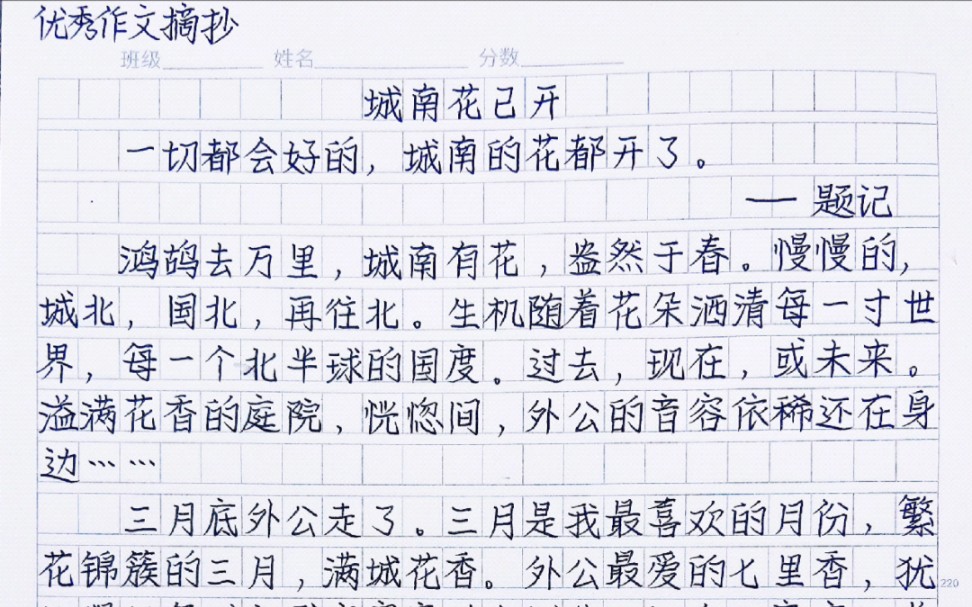 优秀作文摘抄
班级 姓名 分数
城南花已开
一切都会好的,城南的花都开了。
——题记
鸿鹄去万里,城南有花,盎然于春。慢慢的,
城北,国北,再往北。生机随着花朵洒清每一寸世
界,每一个北半球的国度。过去,现在,或未来。
溢满花香的庭院,恍惚间,外公的音容依稀还在身
边……
三月底外公走了。三月是我最喜欢的月份,繁
花锦簇的三月,满城花香。外公最爱的七里香,犹
220